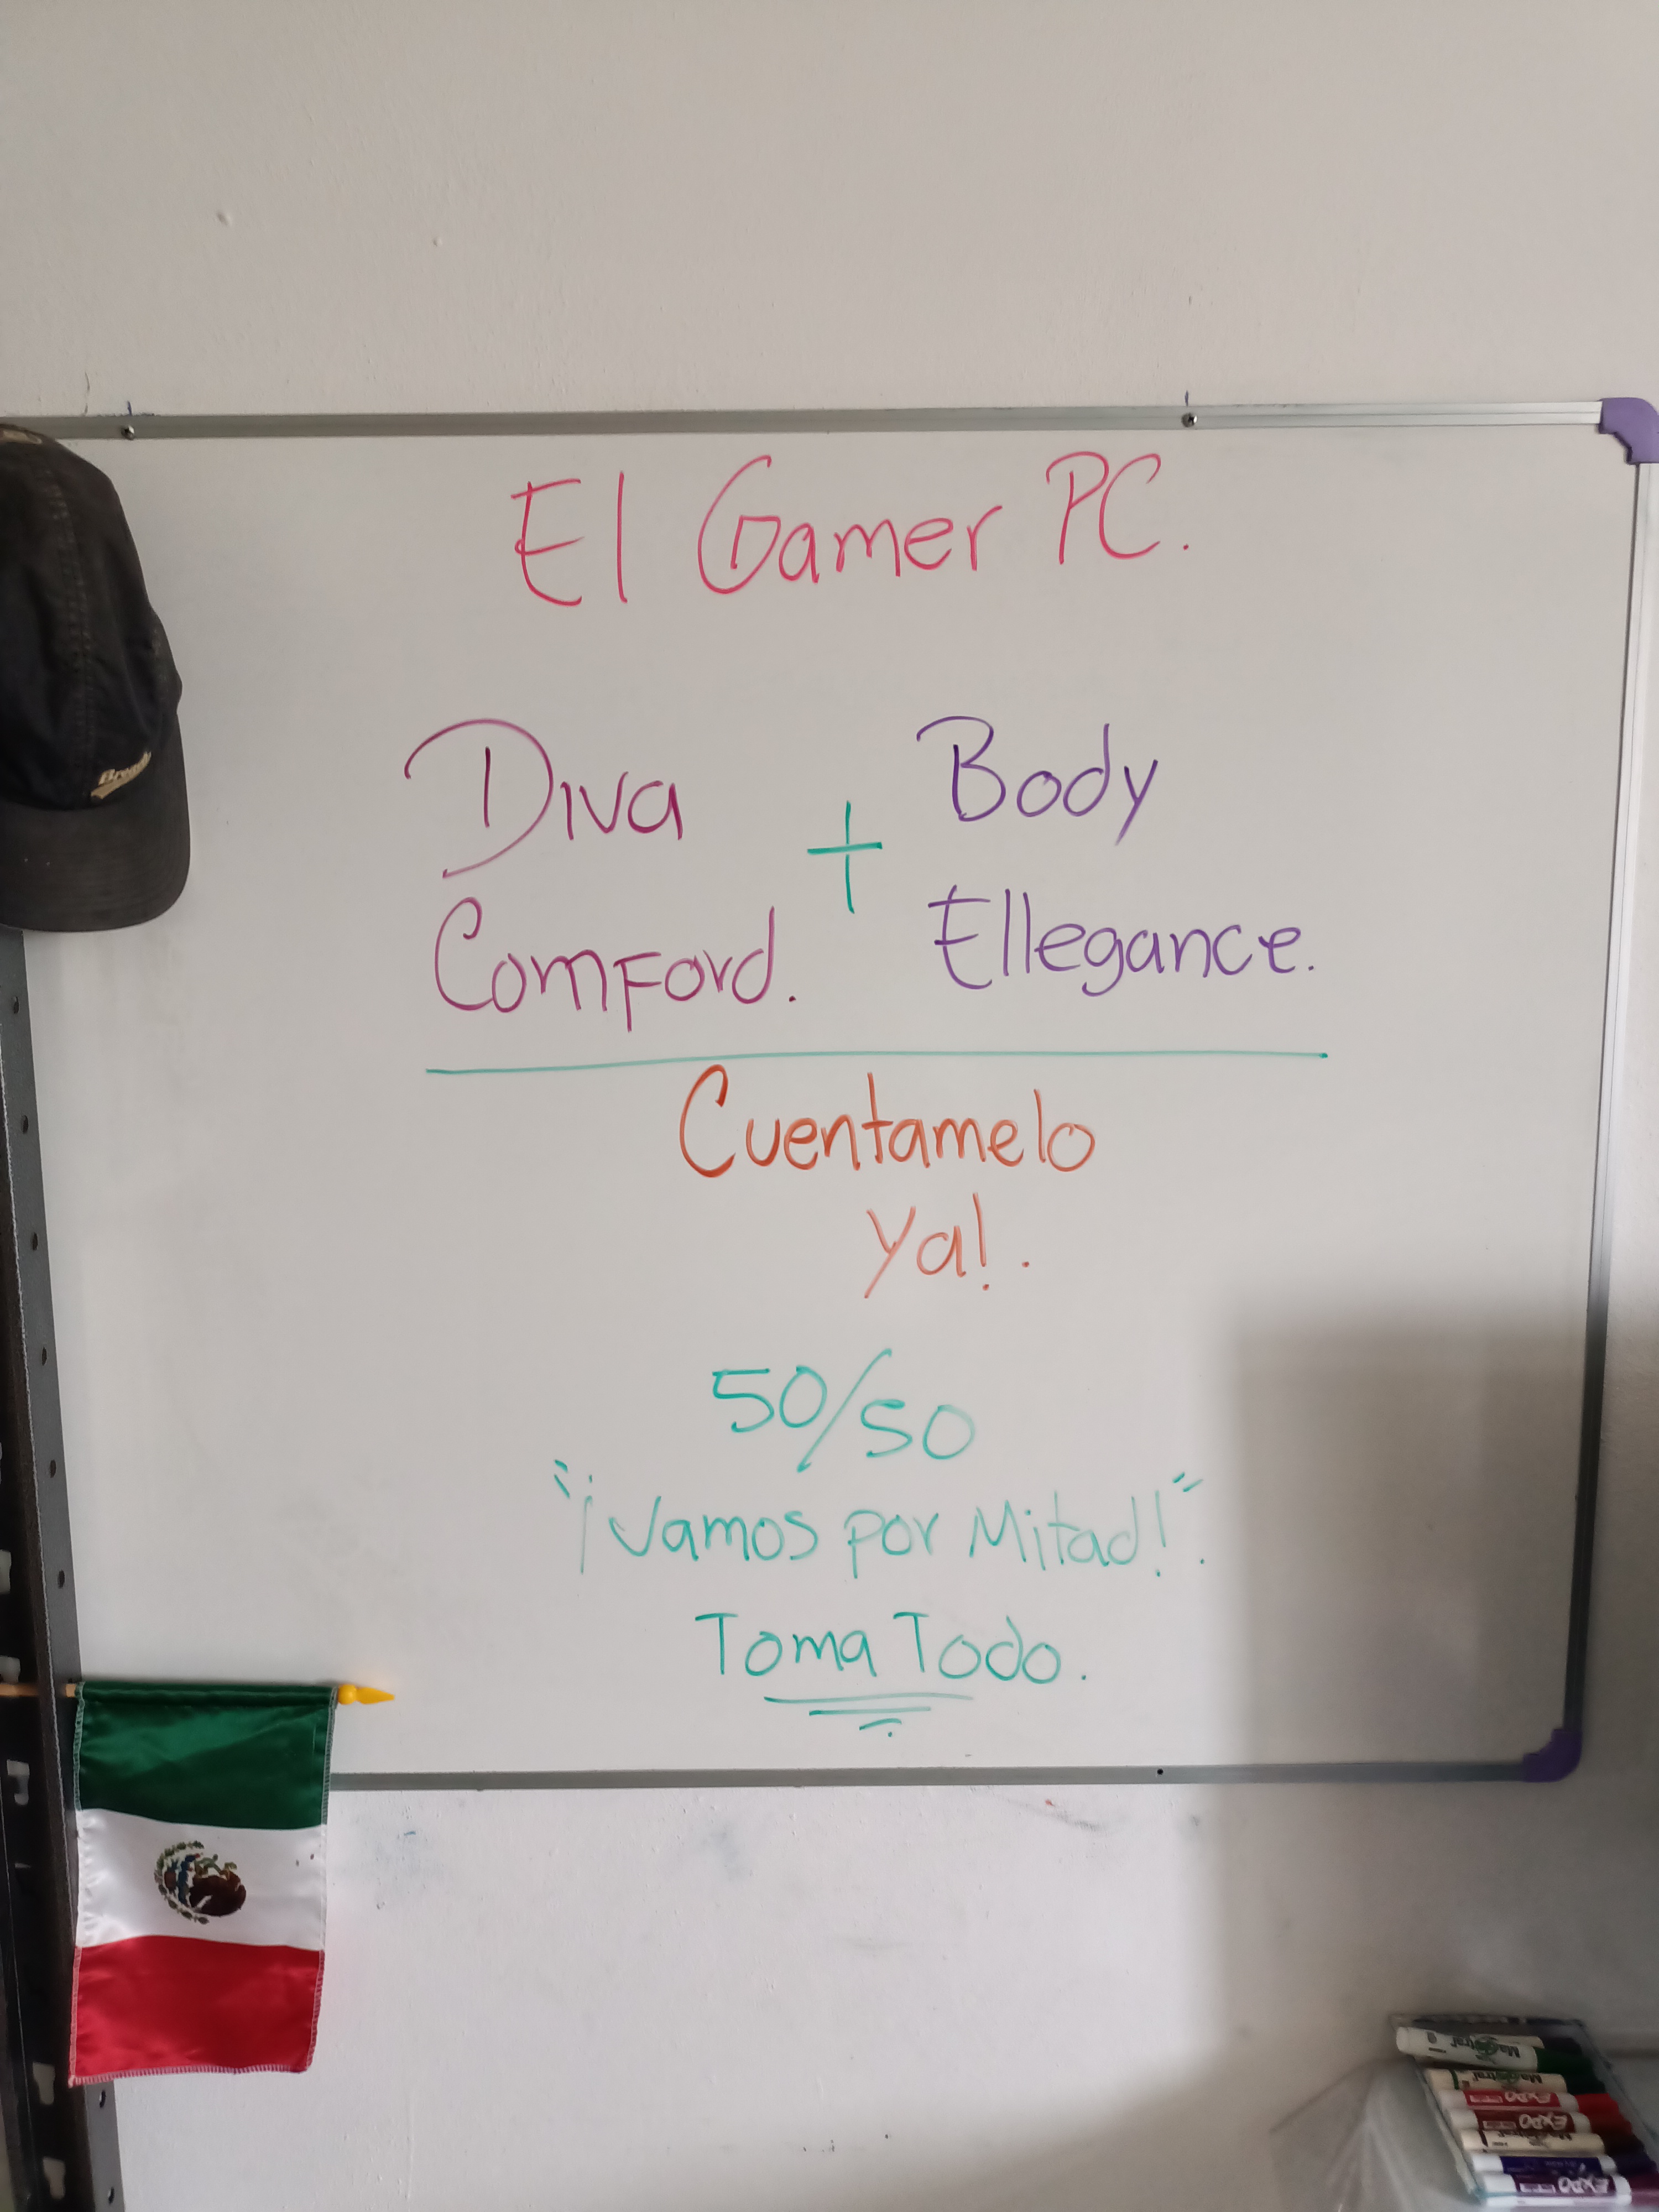 El Gamer PC.
Diva
Comford.
+
Body
Ellegance.
Cuentamelo
ya!.
50/50
"¡Vamos por Mitad!".
Toma Todo.
Magistral
Magistral
EXPO
EXPO
EXPO